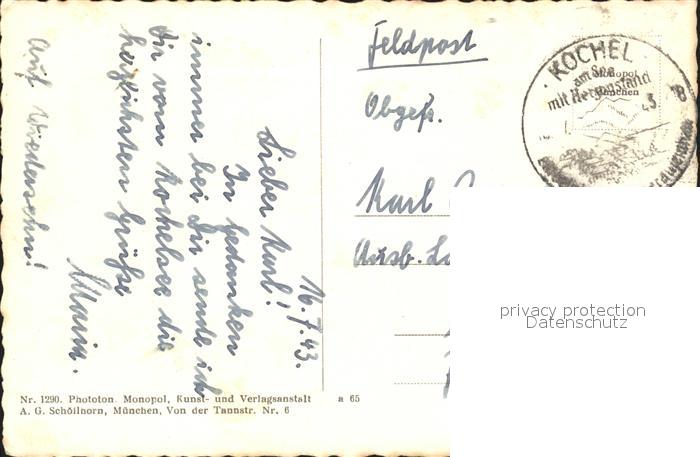 16.7.43.
Lieber Karl!
In Gedanken
immer bei Dir sende ich
Dir vom Kochelsee die
herzlichsten Grüße
Maria.
Auf Wiedersehn!
Feldpost
Obgefr.
Karl
Ausb.
KOCHEL
am See
mit Herzogstand
Monopol
München
privacy protection
Datenschutz
Nr. 1290. Phototon Monopol, Kunst- und Verlagsanstalt
A. G. Schöllhorn, München, Von der Tannstr. Nr. 6
a 65